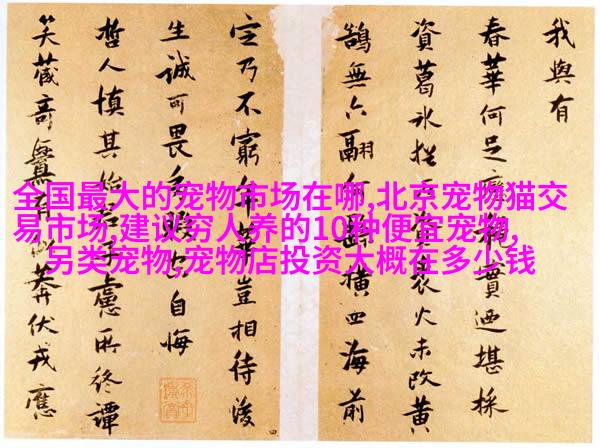 全国最大的宠物市场在哪,北京宠物猫交
易市场,建议穷人养的10种便宜宠物,
另类宠物,宠物店投资大概在多少钱
我與有
春華何足貫迺堪採
資葛裘火未改黃
鵠無六翮何橫四海前
乃不窮年華豈相待後
生誠可畏敗自悔
哲人慎其始君子慮所終譚
笑奇釁有莽伏戎應
四